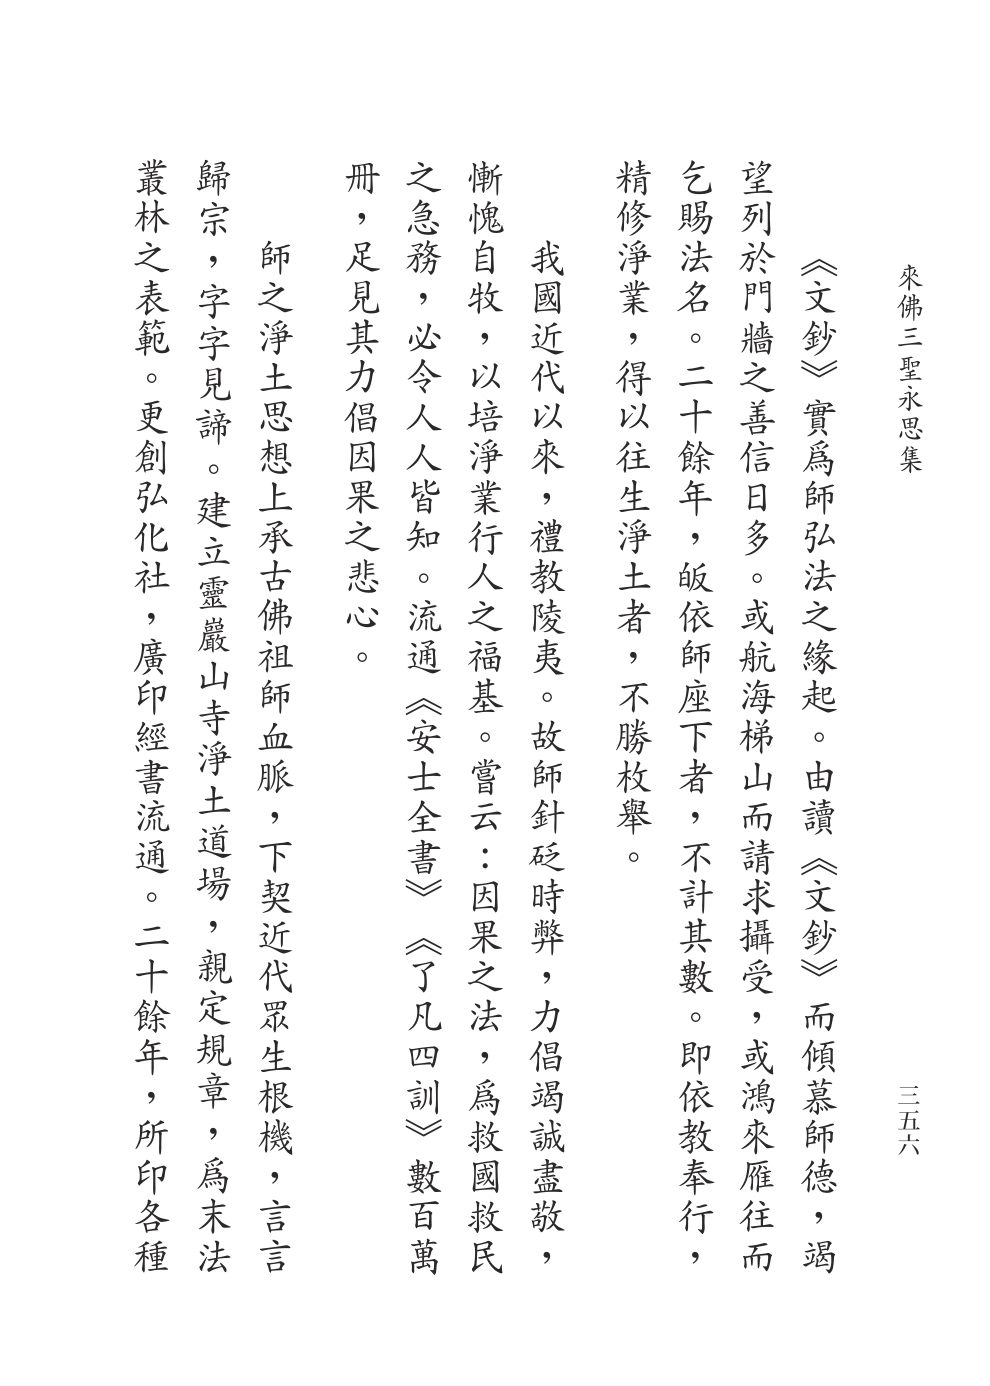 來佛三聖永思集
三五六
《文鈔》實爲師弘法之緣起。由讀《文鈔》而傾慕師德，竭
望列於門牆之善信日多。或航海梯山而請求攝受，或鴻來雁往而
乞賜法名。二十餘年，皈依師座下者，不計其數。即依教奉行，
精修淨業，得以往生淨土者，不勝枚舉。
我國近代以來，禮教陵夷。故師針砭時弊，力倡竭誠盡敬，
慚愧自牧，以培淨業行人之福基。嘗云：因果之法，爲救國救民
之急務，必令人人皆知。流通《安士全書》《了凡四訓》數百萬
冊，足見其力倡因果之悲心。
師之淨土思想上承古佛祖師血脈，下契近代眾生根機，言言
歸宗，字字見諦。建立靈巖山寺淨土道場，親定規章，爲末法
叢林之表範。更創弘化社，廣印經書流通。二十餘年，所印各種